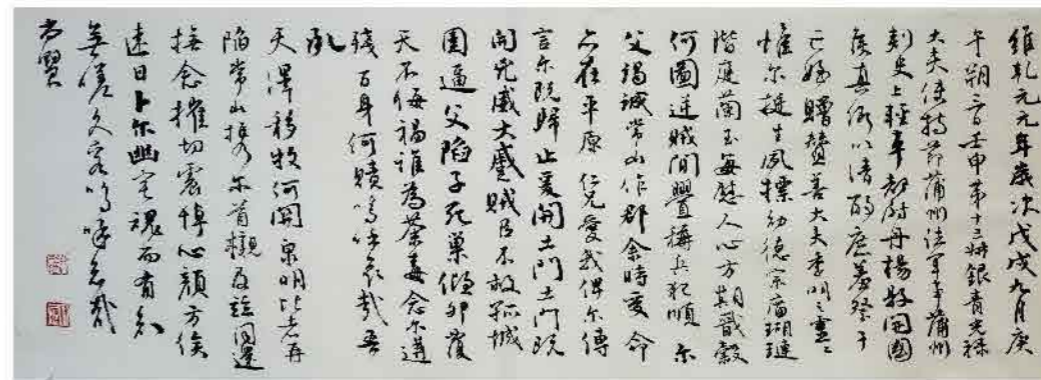 維乾元元年歲次戊戌九月庚
午朔三日壬申第十三叔銀青光祿
大夫使持節蒲州諸軍事蒲州
刺史上輕車都尉丹楊縣開國
侯真卿以清酌庶羞祭于
亡姪贈贊善大夫季明之靈
惟爾挺生夙標幼德宗廟瑚璉
階庭蘭玉每慰人心方期戩穀
何圖逆賊閒釁稱兵犯順 爾
父竭誠常山作郡余時受命
亦在平原 仁兄愛我俾爾傳
言爾既歸止爰開土門土門既
開兇威大蹙賊臣不救孤城
圍逼父陷子死巢傾卵覆
天不悔禍誰為荼毒念爾遘
殘百身何贖嗚呼哀哉吾
承
天澤移牧河關泉明比者再
陷常山携爾首櫬及茲同還
撫念摧切震悼心顏方俟
遠日卜爾幽宅魂而有知
無嗟久客嗚呼哀哉
尚饗